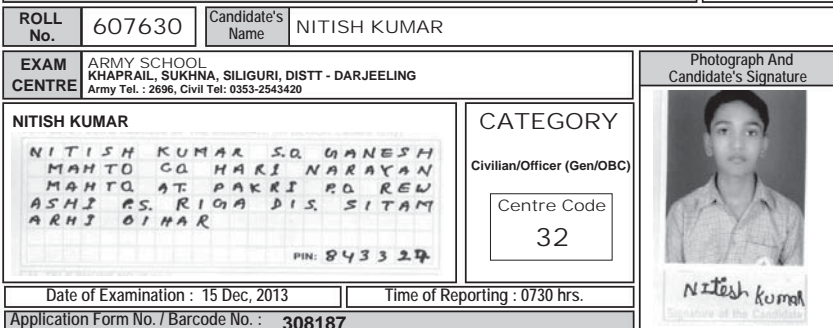 ROLL No.
607630
Candidate's Name
NITISH KUMAR
EXAM CENTRE
ARMY SCHOOL
KHAPRAIL, SUKHNA, SILIGURI, DISTT - DARJEELING
Army Tel. : 2696, Civil Tel: 0353-2543420
Photograph And
Candidate's Signature
NITISH KUMAR
NITISH KUMAR S.O. GANESH
MAHTO CO HARI NARAYAN
MAHTO AT. PAKRI P.O REW
ASHI P.S. RIGA DIS. SITAM
ARHI BIHAR
PIN: 843327
CATEGORY
Civilian/Officer (Gen/OBC)
Centre Code
32
Nitesh Kumar
Signature of the Candidate
Date of Examination : 15 Dec, 2013
Time of Reporting : 0730 hrs.
Application Form No. / Barcode No. : 308187